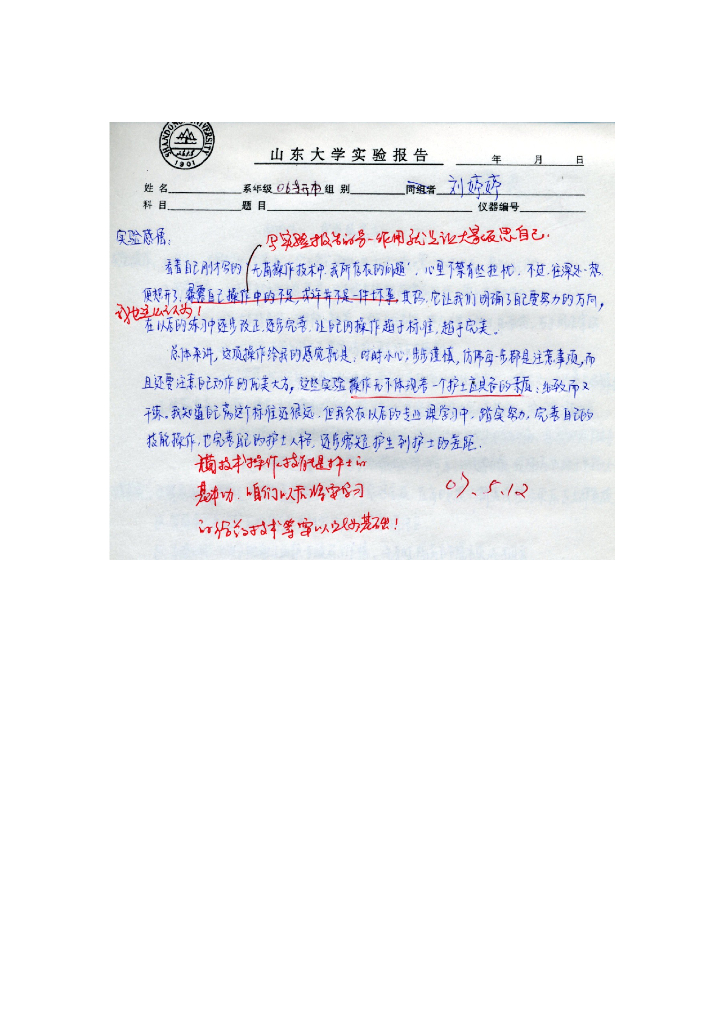 SHANDONG UNIVERSITY
1901
山东大学实验报告 年 月 日
姓名 系年级 06 本 组别 同组者 刘婷婷
科目 题目 仪器编号
实验感悟:
写实验报告的另一作用就是让大家反思自己.
看着自己刚才写的“无菌操作技术中,我所存在的问题”,心里不禁有些担忧.不过,往深处想,
便想开了,暴露自己操作中的不足,或许并不是一件坏事,其实,它让我们明确了自己要努力的方向,
我也这么认为!
在以后的练习中逐步改正,逐步完善,让自己的操作趋于标准,趋于完美。
总体来讲,这项操作给我的感觉就是:时时小心,步步谨慎,仿佛每一步都是注意事项,而
且还要注意自己动作的优美大方,这些实验操作无不体现着一个护士应具备的素质:细致而又
干练。我知道自己离这个标准还很远,但我会在以后的专业课学习中,踏实努力,完善自己的
技能操作,也完善自己的护士人格,逐步缩短护生到护士的差距.
无菌技术操作技能是护士的
基本功,咱们以后临要学习
的 技术等要以此为基础!
07.5.12